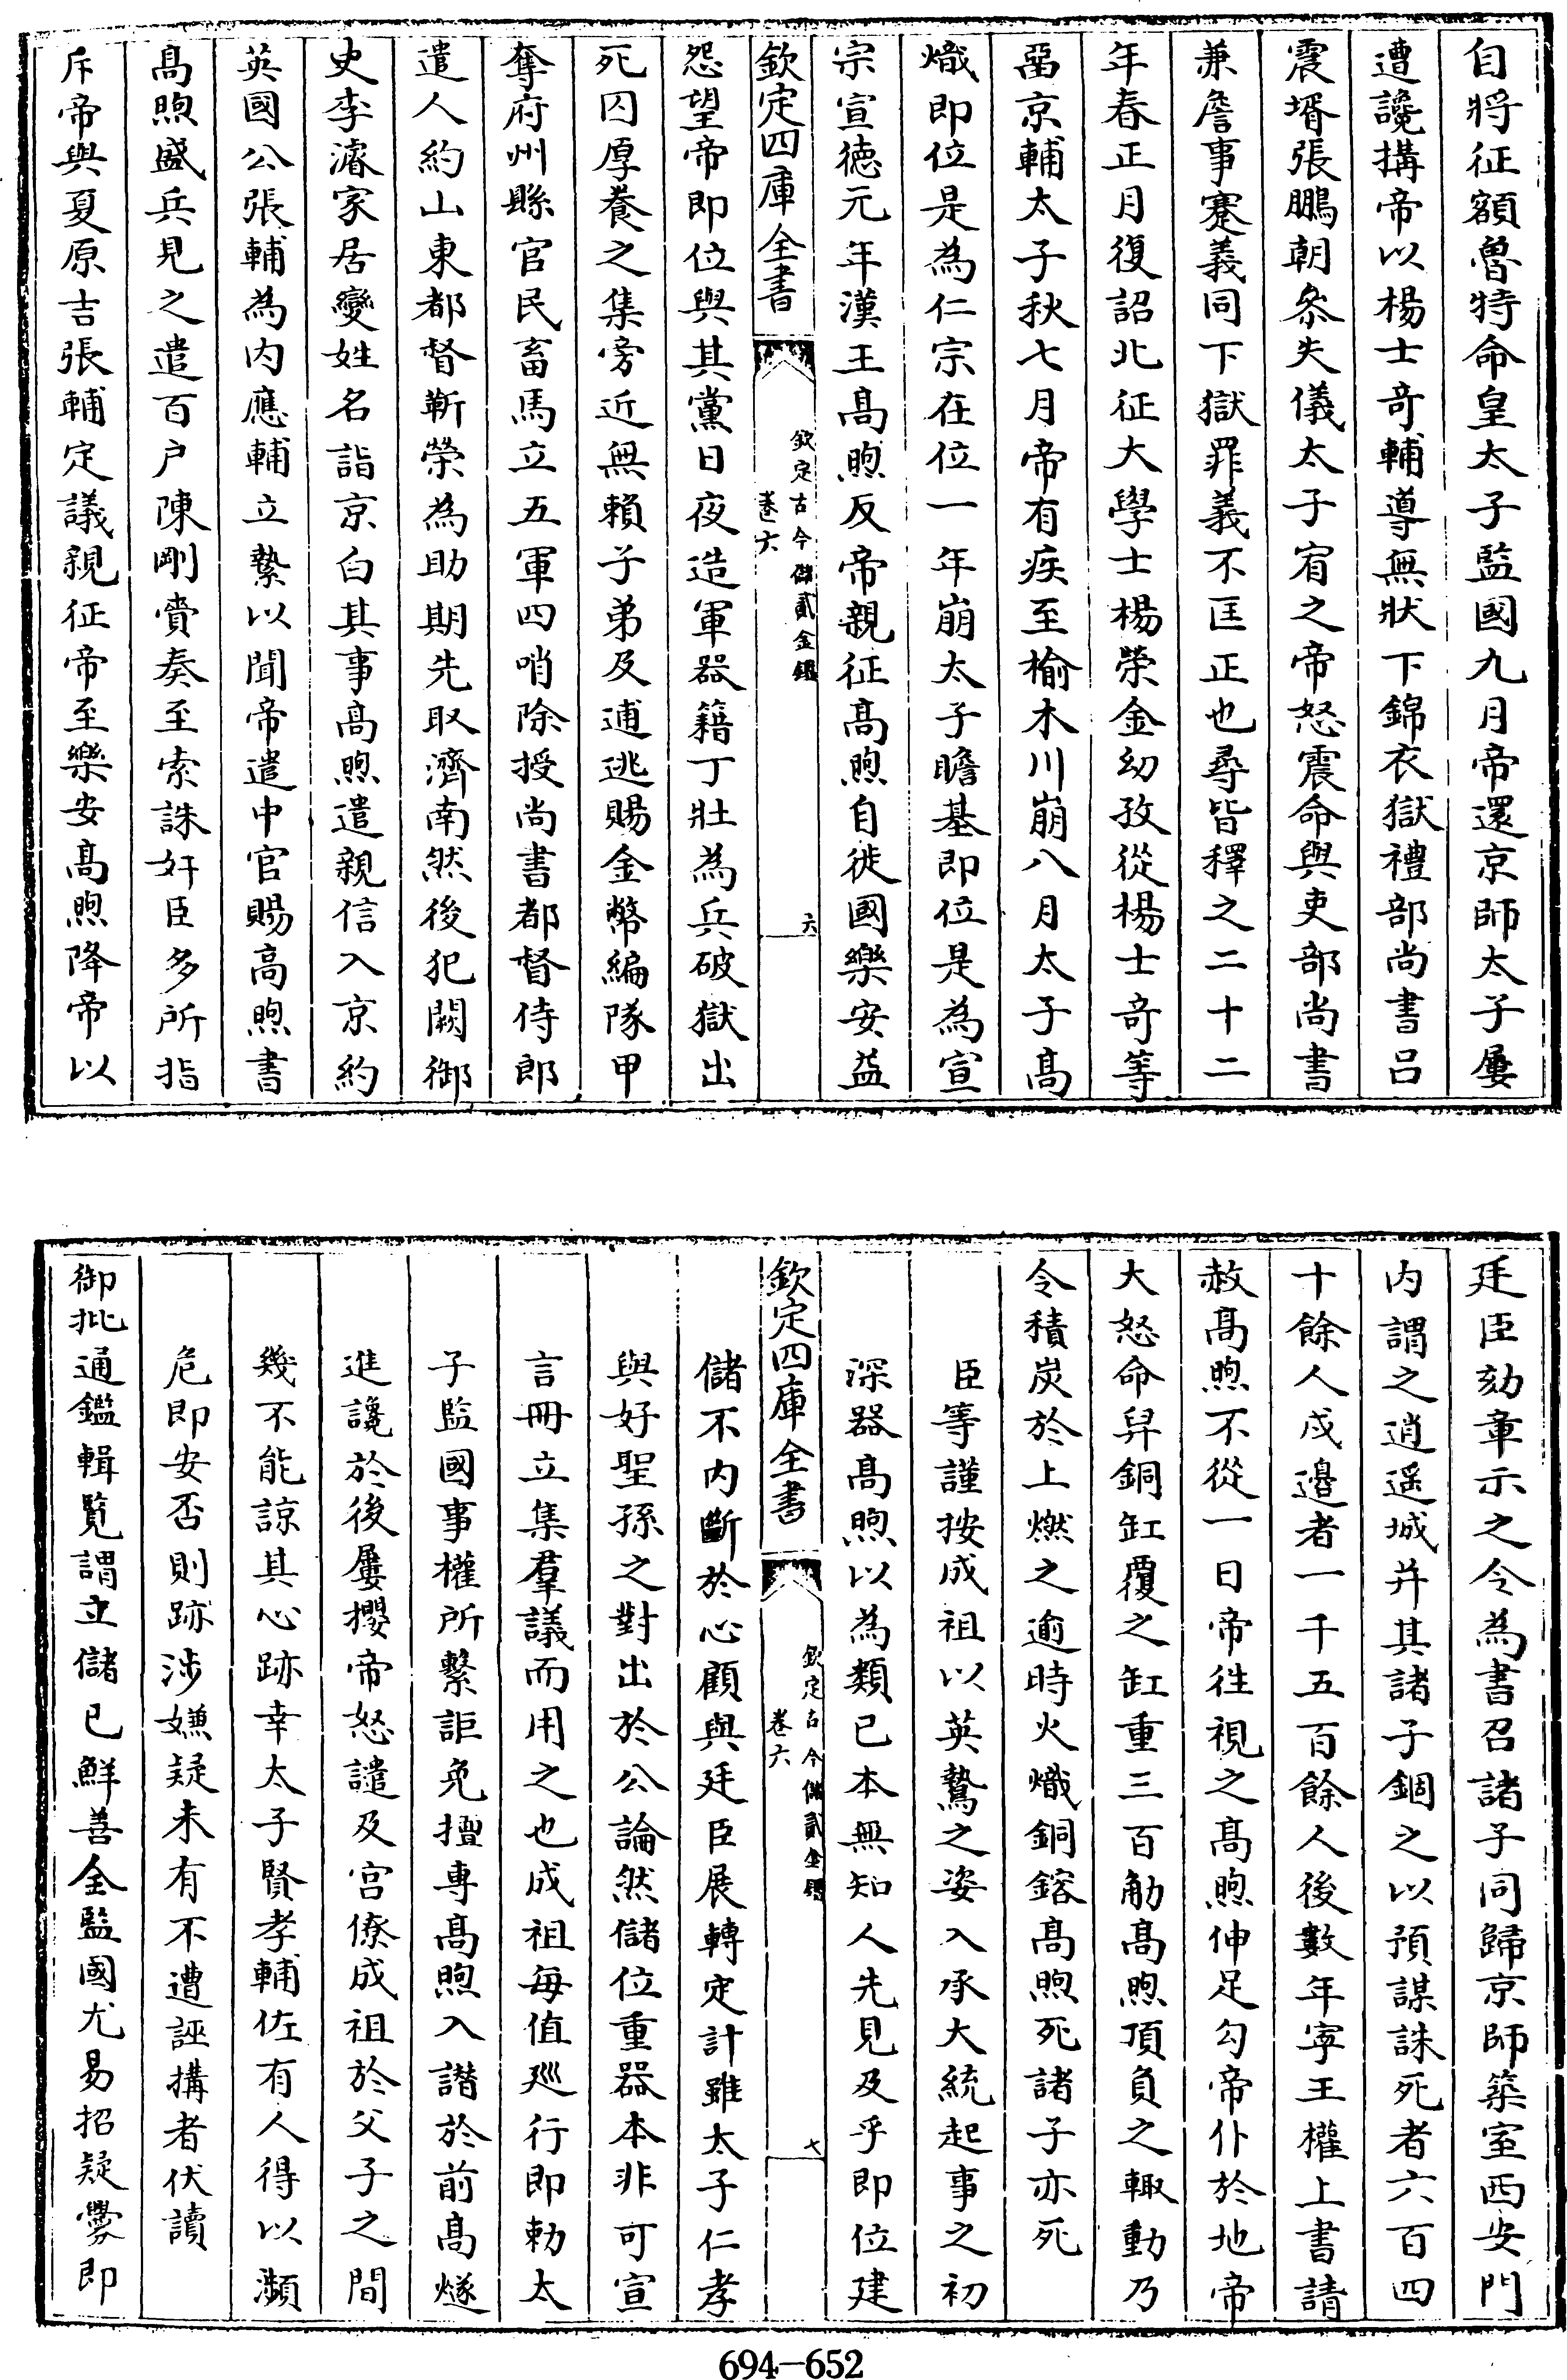 自將征額魯特命皇太子監國九月帝還京師太子屢
遭讒搆帝以楊士竒輔導無狀下錦衣獄禮部尚書吕
震壻張鵬朝叅失儀太子宥之帝怒震命與吏部尚書
兼詹事蹇義同下獄罪義不匡正也尋皆釋之二十二
年春正月復詔北征大學士楊榮金幼孜從楊士竒等
畱京輔太子秋七月帝有疾至榆木川崩八月太子髙
熾即位是為仁宗在位一年崩太子瞻基即位是為宣
宗宣徳元年漢王髙煦反帝親征髙煦自徙國樂安益
欽定四庫全書
欽定古今儲貳金鑑
卷六
六
怨望帝即位與其黨日夜造軍器籍丁壯為兵破獄出
死囚厚養之集旁近無賴子弟及逋逃賜金幣編隊甲
奪府州縣官民畜馬立五軍四哨除授尚書都督侍郎
遣人約山東都督靳榮為助期先取濟南然後犯闕御
史李濬家居變姓名詣京白其事髙煦遣親信入京約
英國公張輔為内應輔立縶以聞帝遣中官賜髙煦書
髙煦盛兵見之遣百户陳剛賫奏至索誅奸臣多所指
斥帝與夏原吉張輔定議親征帝至樂安髙煦降帝以
廷臣劾章示之令為書召諸子同歸京師築室西安門
内謂之逍遥城并其諸子錮之以預謀誅死者六百四
十餘人戍邊者一千五百餘人後數年寧王權上書請
赦髙煦不從一日帝徃視之髙煦伸足勾帝仆於地帝
大怒命舁銅缸覆之缸重三百觔髙煦頂負之輙動乃
令積炭於上燃之逾時火熾銅鎔髙煦死諸子亦死
臣等謹按成祖以英鷙之姿入承大統起事之初
深器髙煦以為類已本無知人先見及乎即位建
欽定四庫全書
欽定古今儲貳金鑑
卷六
七
儲不内斷於心顧與廷臣展轉定計雖太子仁孝
與好聖孫之對出於公論然儲位重器本非可宣
言冊立集羣議而用之也成祖每值廵行即勅太
子監國事權所繫詎免擅專髙煦入譖於前髙燧
進讒於後屢攖帝怒譴及宫僚成祖於父子之間
幾不能諒其心跡幸太子賢孝輔佐有人得以瀕
危即安否則跡涉嫌疑未有不遭誣搆者伏讀
御批通鑑輯覧謂立儲已鮮善全監國尤易招疑釁即
694—652